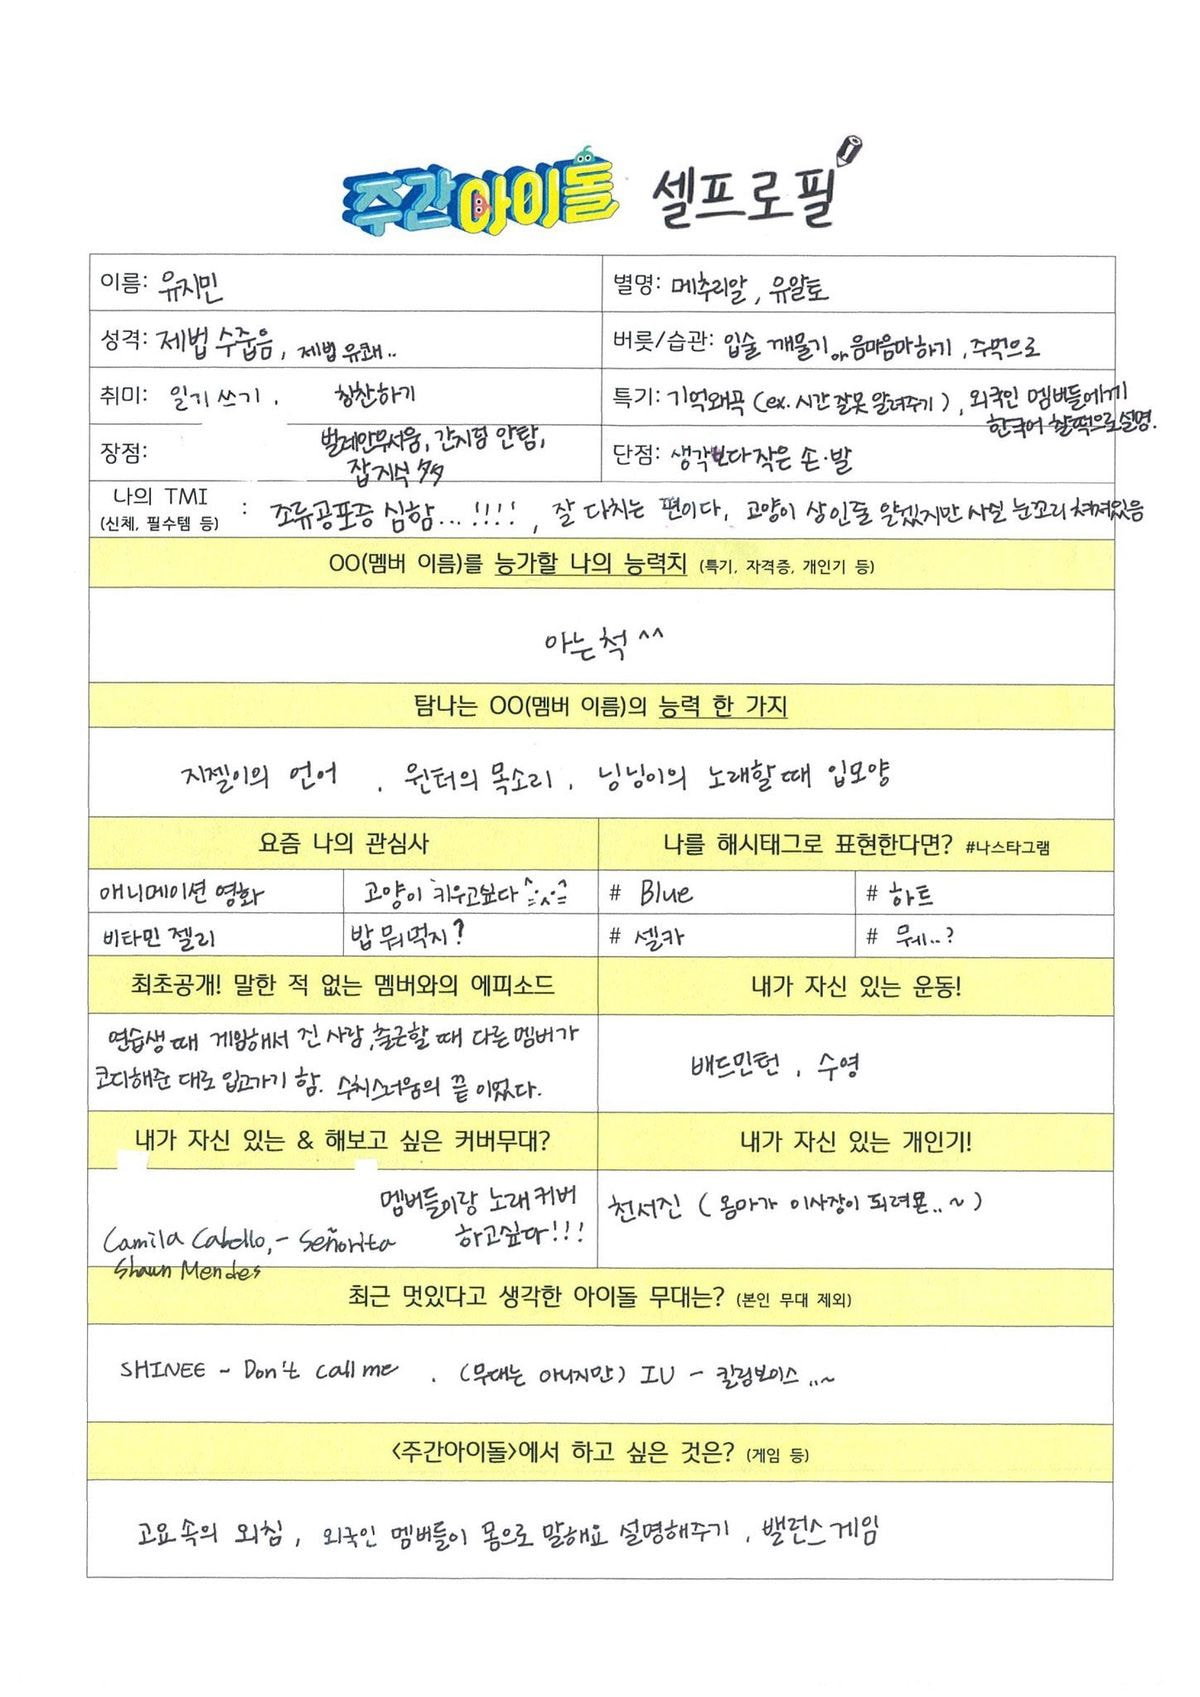 주간아이돌 셀프로필
이름: 유지민
별명: 메추리알, 유알토
성격: 제법 수줍음, 제법 유쾌..
버릇/습관: 입술 깨물기 or 음마음마하기, 주먹으로
취미: 일기쓰기, 칭찬하기
특기: 기억왜곡 (ex. 시간 잘못 알려주기), 외국인 멤버들에게
한국어 찰떡으로 설명.
장점: 벌레안무서움, 간지럼 안탐,
잡지식 多多
단점: 생각보다 작은 손·발
나의 TMI
(신체, 필수템 등)
: 조류공포증 심함...!!!!, 잘 다치는 편이다, 고양이 상인줄 알겠지만 사실 눈꼬리 쳐져있음
OO(멤버 이름)를 능가할 나의 능력치 (특기, 자격증, 개인기 등)
아는척 ^^
탐나는 OO(멤버 이름)의 능력 한 가지
지젤이의 언어, 윈터의 목소리, 닝닝이의 노래할때 입모양
요즘 나의 관심사
나를 해시태그로 표현한다면? #나스타그램
애니메이션 영화
고양이 키우고싶다
# Blue
# 하트
비타민 젤리
밥 뭐먹지?
# 셀카
# 뭐..?
최초공개! 말한 적 없는 멤버와의 에피소드
내가 자신 있는 운동!
연습생때 게임해서 진 사람, 출근할때 다른 멤버가
코디해준 대로 입고가기 함. 수치스러움의 끝 이었다.
배드민턴, 수영
내가 자신 있는 & 해보고 싶은 커버무대?
내가 자신 있는 개인기!
멤버들이랑 노래커버
하고싶다!!!
Camila Cabello, - Señorita
Shawn Mendes
천서진 (엄마가 이사장이 되려묜..~)
최근 멋있다고 생각한 아이돌 무대는? (본인 무대 제외)
SHINEE - Don't call me, (무대는 아니지만) IU - 킬링보이스..~
<주간아이돌>에서 하고 싶은 것은? (게임 등)
고요 속의 외침, 외국인 멤버들이 몸으로 말해요 설명해주기, 밸런스게임